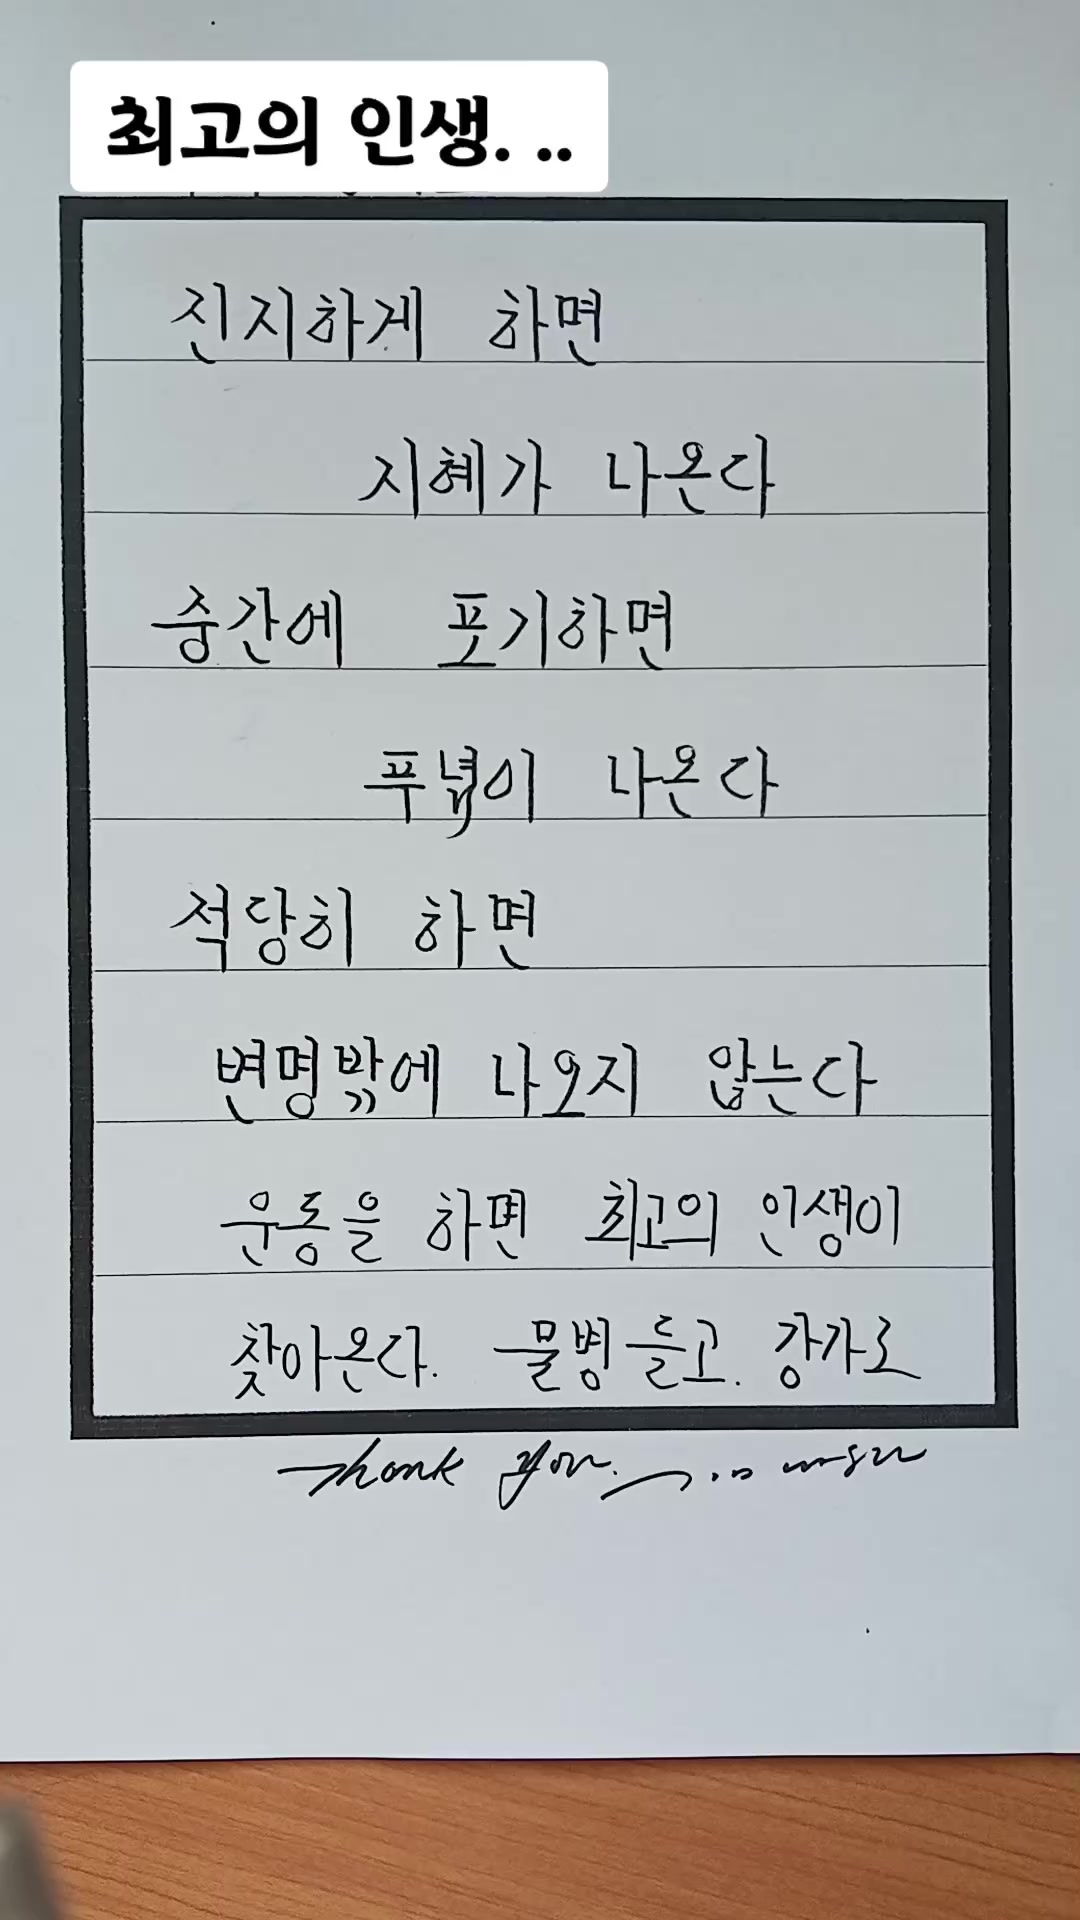 최고의 인생. ..
진지하게 하면
지혜가 나온다
중간에 포기하면
푸념이 나온다
적당히 하면
변명밖에 나오지 않는다
운동을 하면 최고의 인생이
찾아온다. 물병 들고. 강가로
Thank you.